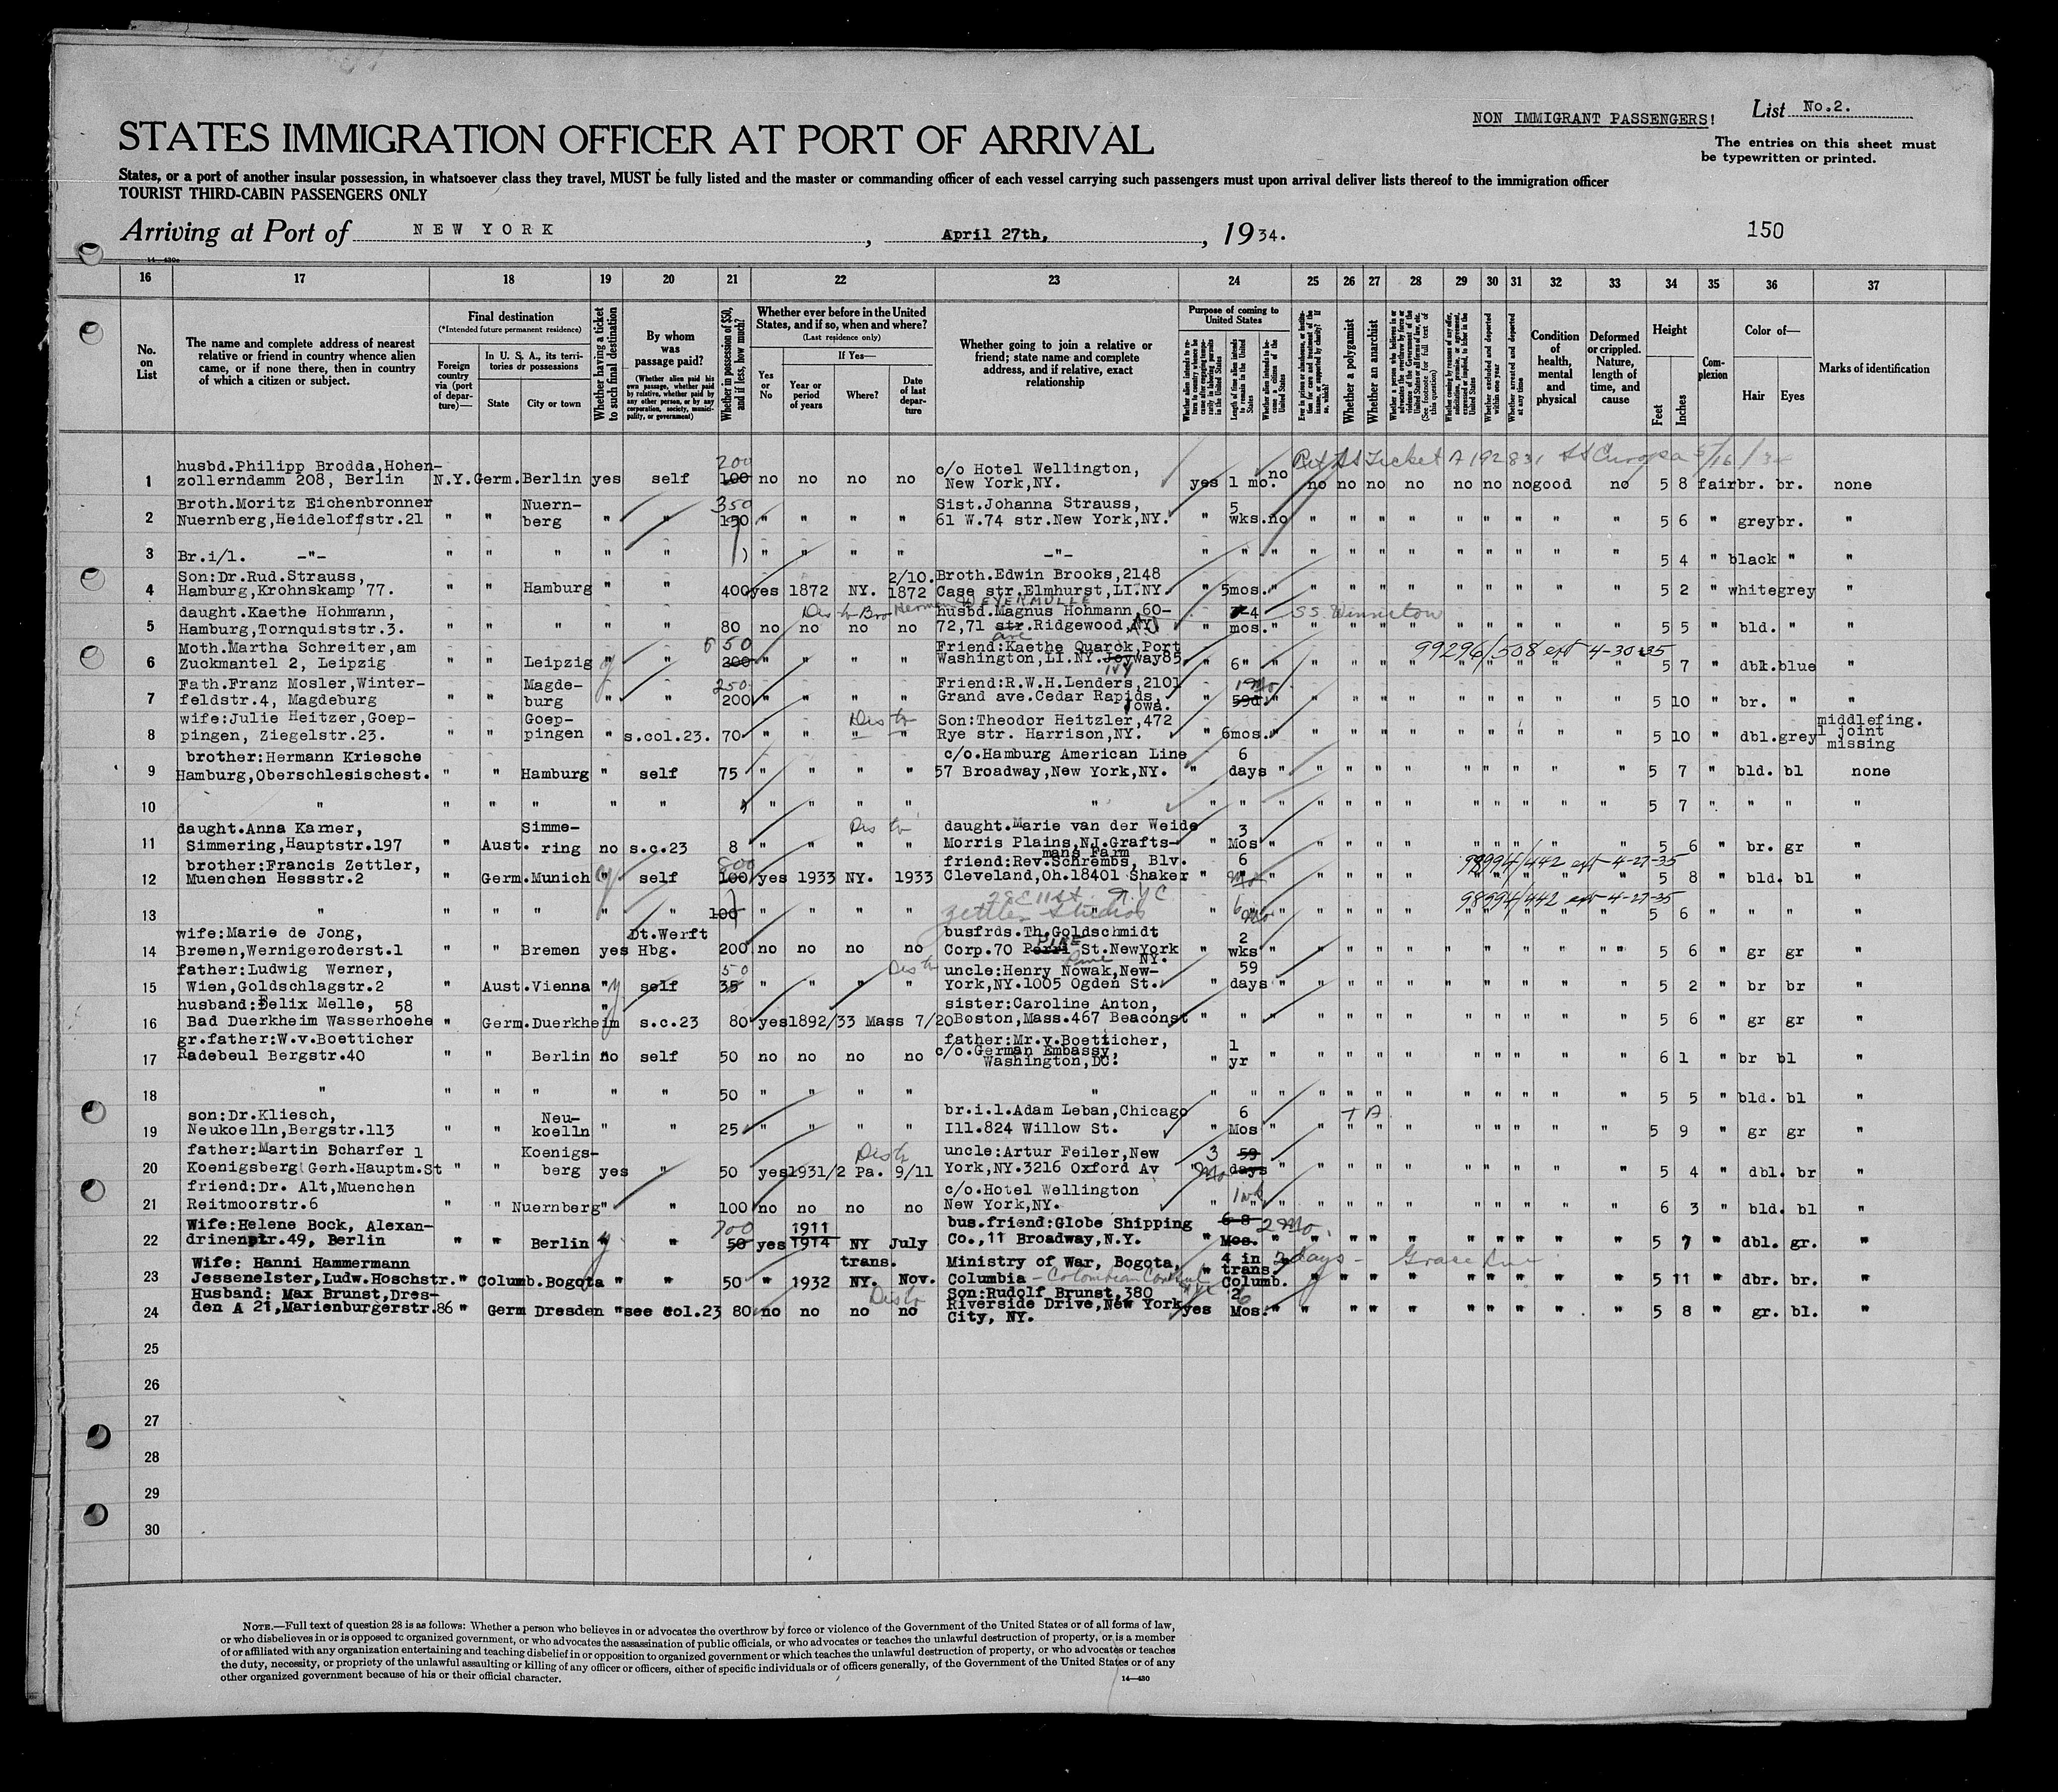 List No.2.
NON IMMIGRANT PASSENGERS!
STATES IMMIGRATION OFFICER AT PORT OF ARRIVAL
The entries on this sheet must
be typewritten or printed.
States, or a port of another insular possession, in whatsoever class they travel, MUST be fully listed and the master or commanding officer of each vessel carrying such passengers must upon arrival deliver lists thereof to the immigration officer
TOURIST THIRD-CABIN PASSENGERS ONLY
Arriving at Port of NEW YORK, April 27th, 1934.
150
16 17 18 19 20 21 22 23 24 25 26 27 28 29 30 31 32 33 34 35 36 37
No. on List
The name and complete address of nearest relative or friend in country whence alien came, or if none there, then in country of which a citizen or subject.
Final destination
(*Intended future permanent residence)
Foreign country via (port of departure)—
In U. S. A., its territories or possessions
State
City or town
Whether having a ticket to such final destination
By whom was passage paid?
(Whether alien paid his own passage, whether paid by relative, whether paid by any other person, or by any corporation, society, municipality, or government)
Whether in possession of $50, and if less, how much?
Whether ever before in the United States, and if so, when and where?
(Last residence only)
Yes or No
If Yes—
Year or period of years
Where?
Date of last departure
Whether going to join a relative or friend; state name and complete address, and if relative, exact relationship
Purpose of coming to United States
Length of time alien intends to remain in the United States
Whether alien intends to become a citizen of the United States
Whether a polygamist
Whether an anarchist
Whether excluded and deported within one year
Whether arrested and deported at any time
Condition of health, mental and physical
Deformed or crippled. Nature, length of time, and cause
Height
Feet
Inches
Complexion
Color of—
Hair
Eyes
Marks of identification
1 husbd.Philipp Brodda,Hohen-
zollerndamm 208, Berlin N.Y. Germ. Berlin yes self 200 100 no no no no c/o Hotel Wellington,
New York,NY. yes 1 mo. no no no no no no no no good no 5 8 fair br. br. none
2 Broth.Moritz Eichenbronner
Nuernberg,Heideloffstr.21 " " Nuern-
berg " " 350 150 " " " " Sist.Johanna Strauss,
61 W.74 str.New York,NY. " 5 wks. no " " " " " " " " " 5 6 " grey br. "
3 Br.i/l. -"- " " " " " " " " " -"- " " " " " " " " " " " " " 5 4 " black " "
4 Son:Dr.Rud.Strauss,
Hamburg,Krohnskamp 77. " " Hamburg " " 400 yes 1872 NY. 2/10. 1872 Broth.Edwin Brooks,2148
Case str.Elmhurst,LI.NY. " 5mos. " " " " " " " " " " 5 2 " white grey "
5 daught.Kaethe Hohmann,
Hamburg,Tornquiststr.3. " " " " " 80 no no no no husbd.Magnus Hohmann,60-
72,71 str. ave Ridgewood,NY. " 4 mos. " " " " " " " " " " 5 5 " bld. " "
6 Moth.Martha Schreiter,am
Zuckmantel 2, Leipzig " " Leipzig " " 50 300 " " " " Friend:Kaethe Quarck,Port
Washington,LI.NY. Joyway85. " 6 " " " " " " " " " " 99296/508 ext 4-30-35 5 7 " dbl. blue "
7 Fath.Franz Mosler,Winter-
feldstr.4, Magdeburg " " Magde-
burg " " 250 200 " " " " Friend:R.W.H.Lenders,2101
Grand ave.Cedar Rapids,
Iowa. " 1 mo 59d. " " " " " " " " " " 5 10 " br. " "
8 wife:Julie Heitzer,Goep-
pingen, Ziegelstr.23. " " Goep-
pingen " s.col.23. 70 " " " " Son:Theodor Heitzler,472
Rye str. Harrison,NY. " 6mos. " " " " " " " " " " 5 10 " dbl. grey middlefing.
1 joint
missing
9 brother:Hermann Kriesche
Hamburg,Oberschlesischest. " " Hamburg " self 75 " " " " c/o.Hamburg American Line
57 Broadway,New York,NY. " 6 days " " " " " " " " " " 5 7 " bld. bl none
10 " " " " " " " " " " " " " " " " " " " " " " " 5 7 " " " "
11 daught.Anna Karner,
Simmering,Hauptstr.197 " Aust. Simme-
ring no s.c.23 8 " " " " daught.Marie van der Weide
Morris Plains,NJ.Grafts-
mans Farm " 3 Mos " " " " " " " " " " 5 6 " br. gr "
12 brother:Francis Zettler,
Muenchen Hessstr.2 " Germ. Munich " self 800 100 yes 1933 NY. 1933 friend:Rev.Schrembs, Blv.
Cleveland,Oh.18401 Shaker " 6 mos " " " " " " " " " " 98994/442 ext 4-27-35 5 8 " bld. bl "
13 " " " " " " 100 " " " " 28 E 11 St. N.Y.C
Zettler Studios " 6 mos " " " " " " " " 98994/442 ext 4-27-35 5 6 " " " "
14 wife:Marie de Jong,
Bremen,Wernigeroderst.1 " " Bremen yes Dt.Werft
Hbg. 200 no no no no busfrds.Th.Goldschmidt
Corp.70 PINE St.NewYork
NY. " 2 wks " " " " " " " " " " 5 6 " gr gr "
15 father:Ludwig Werner,
Wien,Goldschlagstr.2 " Aust. Vienna " self 50 35 " " " " uncle:Henry Nowak,New-
York,NY.1005 Ogden St. " 59 days " " " " " " " " " " 5 2 " br br "
16 husband:Felix Melle, 58
Bad Duerkheim Wasserhoehe " Germ. Duerkheim " s.c.23 80 yes 1892/33 Mass 7/20 sister:Caroline Anton,
Boston,Mass.467 Beaconst " " " " " " " " " " " " 5 6 " gr gr "
17 gr.father:W.v.Boetticher
Radebeul Bergstr.40 " " Berlin no self 50 no no no no father:Mr.v.Boetticher,
c/o.German Embassy,
Washington,DC. " 1 yr " " " " " " " " " " 6 1 " br bl "
18 " " " " " " 50 " " " " " " " " " " " " " " " " " " 5 5 " bld. bl "
19 son:Dr.Kliesch,
Neukoelln,Bergstr.113 " " Neu-
koelln " " 25 " " " " br.i.l.Adam Leban,Chicago
Ill.824 Willow St. " 6 Mos " " " " " " " " " " 5 9 " gr gr "
20 father:Martin Scharfer 1
Koenigsberg Gerh.Hauptm.St " " Koenigs-
berg yes " 50 yes 1931/2 Pa. 9/11 uncle:Artur Feiler,New
York,NY.3216 Oxford Av " 3 Mo 59 days " " " " " " " " " 5 4 " dbl. br "
21 friend:Dr. Alt,Muenchen
Reitmoorstr.6 " " Nuernberg " " 100 no no no no c/o.Hotel Wellington
New York,NY. " " " " " " " " " " " " 6 3 " bld. bl "
22 Wife:Helene Bock, Alexan-
drinenstr.49, Berlin " " Berlin " " 700 50 yes 1911
1914 NY July bus.friend:Globe Shipping
Co.,11 Broadway,N.Y. " 6-8 Mos. 2 Mo. " " " " " " " " " " 5 7 " dbl. gr. "
23 Wife: Hanni Hammermann
Jessenelster,Ludw.Hoschstr. " Columb. Bogota " " 50 " 1932 trans.
NY. Nov. Ministry of War, Bogota,
Columbia - Colombian Consul " 4 in
trans.
Columb. days - Grace Line " " " " " " " " " 5 11 " dbr. br. "
24 Husband: Max Brunst,Dres-
den A 21,Marienburgerstr.86 " Germ Dresden " see col.23 80 no no no no Son:Rudolf Brunst,380
Riverside Drive,New York
City, NY. yes 6 Mos. " " " " " " " " " " 5 8 " gr. bl. "
25
26
27
28
29
30
NOTE.—Full text of question 28 is as follows: Whether a person who believes in or advocates the overthrow by force or violence of the Government of the United States or of all forms of law,
or who disbelieves in or is opposed to organized government, or who advocates the assassination of public officials, or who advocates or teaches the unlawful destruction of property, or is a member
of or affiliated with any organization entertaining and teaching disbelief in or opposition to organized government or which teaches the unlawful destruction of property, or who advocates or teaches
the duty, necessity, or propriety of the unlawful assaulting or killing of any officer or officers, either of specific individuals or of officers generally, of the Government of the United States or of any
other organized government because of his or their official character.
14—430